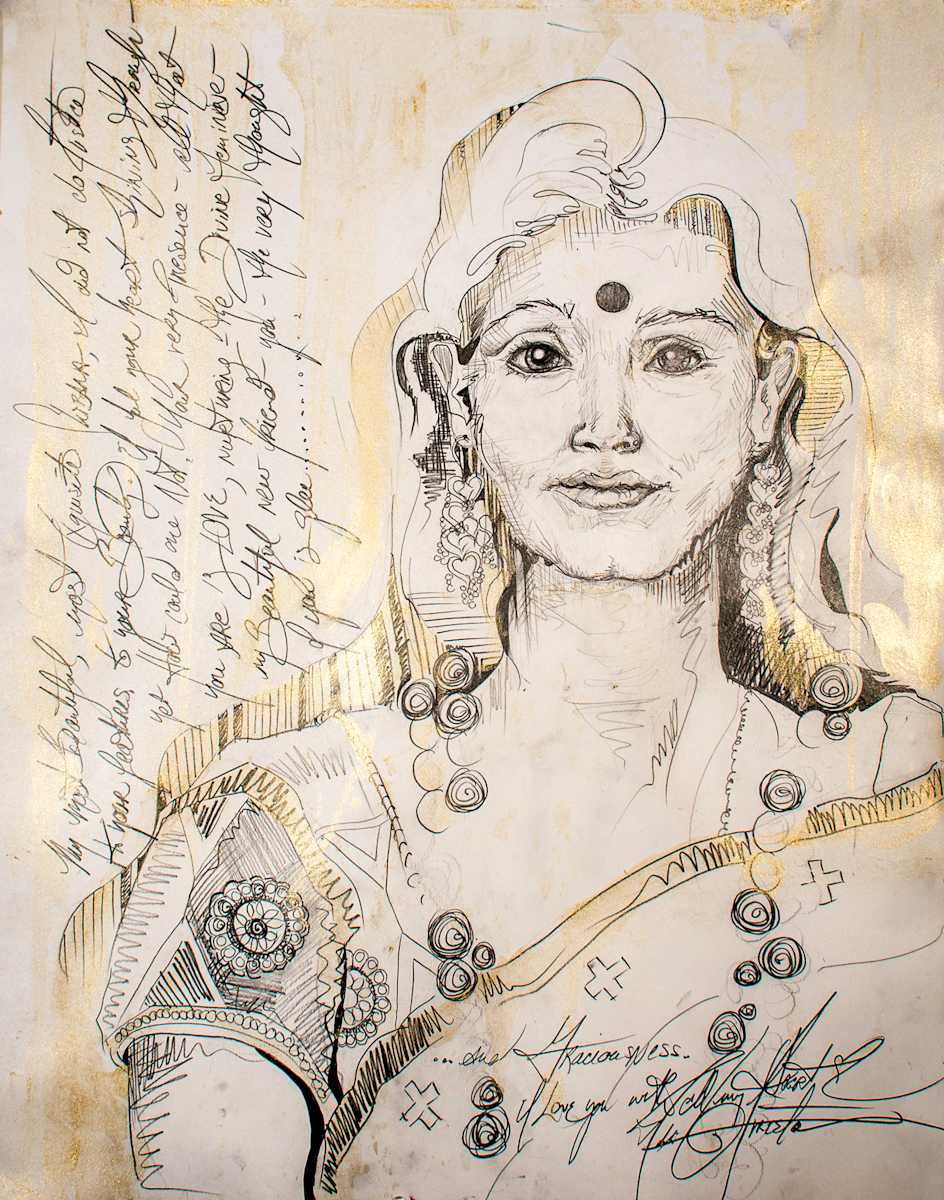 My most Beautiful, most Exquisite I did not do justice
to your features, to your Beauty. I feel your heart shining through
yet How could one Not? Your very Presence - all that
you are is LOVE, nurturing - the Divine Feminine -
my Beautiful new friend - you - the very thought
of you is glee..........joy
...and Graciousness.
I Love you with all my Heart